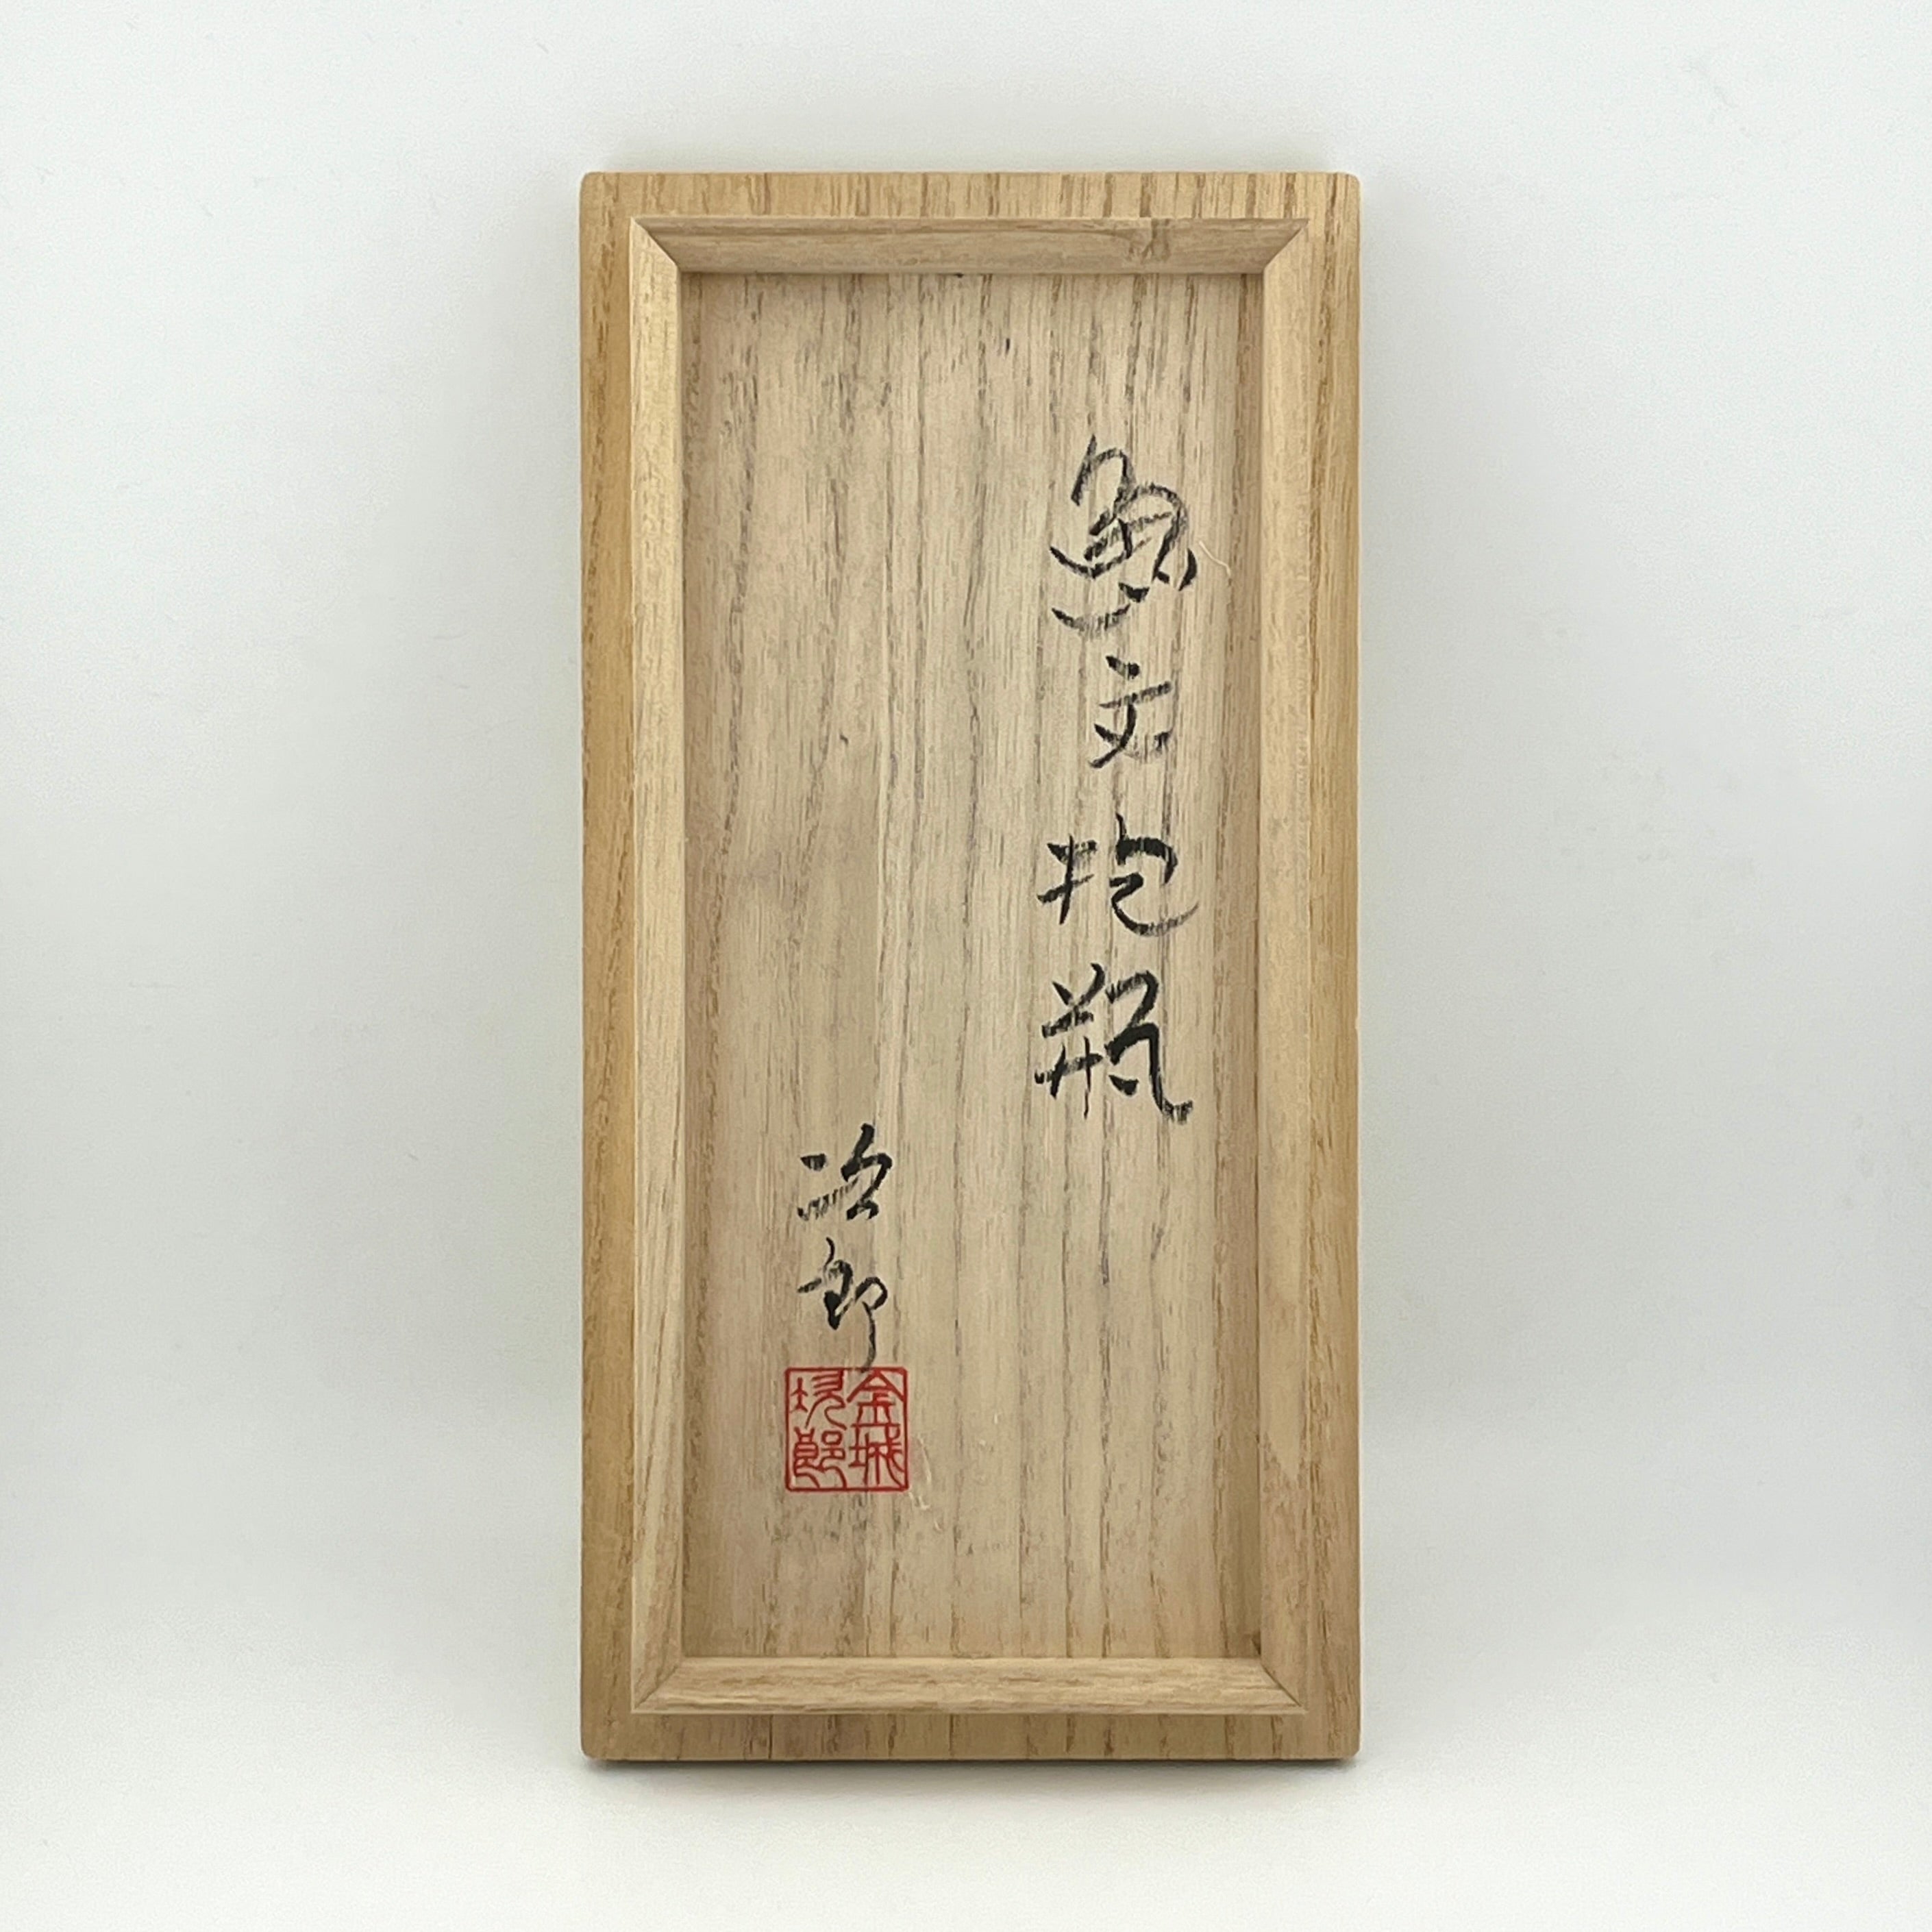 魚文抱瓶
次郎
金城次郎